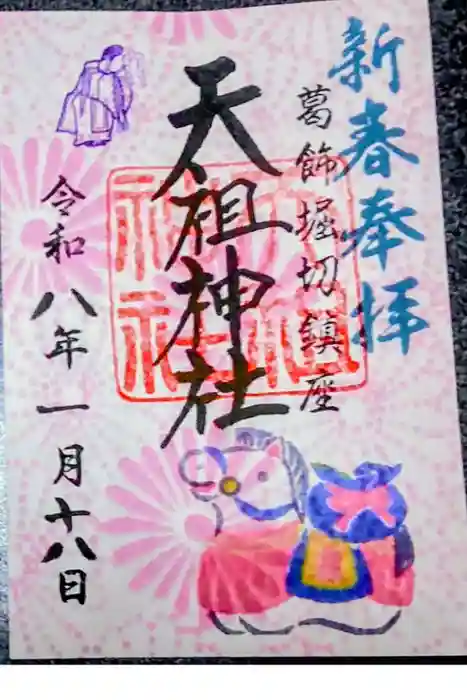 新春奉拝
葛飾堀切鎮座
天祖神社
令和八年一月十八日